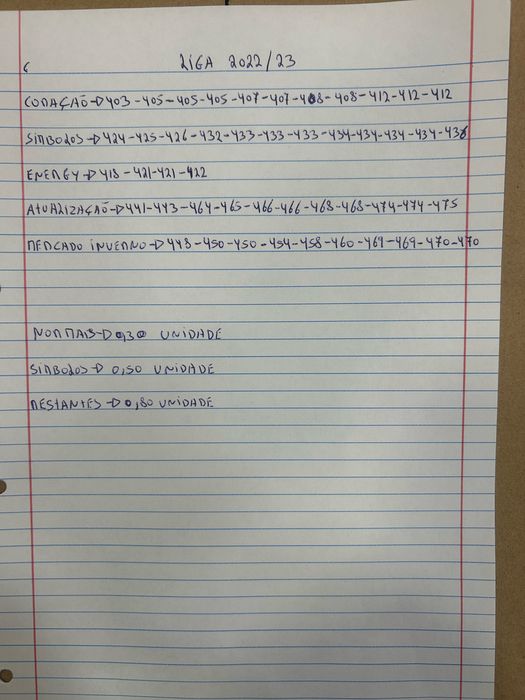 6 LIGA 2022/23
CORAÇÃO → 403 - 405 - 405 - 405 - 407 - 407 - 408 - 408 - 412 - 412 - 412
SIMBOLOS → 424 - 425 - 426 - 432 - 433 - 433 - 433 - 434 - 434 - 434 - 434 - 436
ENERGY → 418 - 421 - 421 - 422
ATUALIZAÇÃO → 441 - 443 - 464 - 465 - 466 - 466 - 468 - 468 - 474 - 474 - 475
MERCADO INVERNO → 448 - 450 - 450 - 454 - 458 - 460 - 469 - 469 - 470 - 470
NORMAIS → 0,30 UNIDADE
SIMBOLOS → 0,50 UNIDADE
RESTANTES → 0,80 UNIDADE